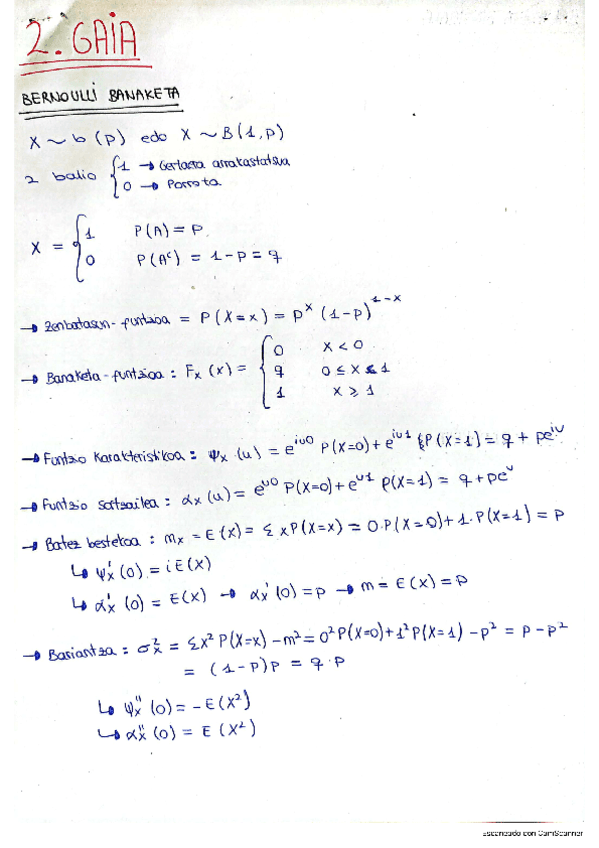 2. GAIA
BERNOULLI BANAKETA
X ~ b (p) edo X ~ B(1,p)
2 balio { 1 → Gertaera arrakastatsua
0 → Porrota
X = { 1 P(A) = p
0 P(Aᶜ) = 1-p = q
→ Zenbatasun-funtzioa = P(X=x) = pˣ (1-p)¹⁻ˣ
→ Banaketa-funtzioa : Fₓ(x) = { 0 x < 0
q 0 ≤ x < 1
1 x ⩾ 1
→ Funtzio karakteristikoa : Ψₓ(u) = e^{iu0} P(X=0) + e^{iu1} P(X=1) = q + pe^{iu}
→ Funtzio sortzailea : αₓ(u) = e^{u0} P(X=0) + e^{u1} P(X=1) = q + pe^{u}
→ Batez bestekoa : mₓ = E(x) = Σ xP(X=x) = 0·P(X=0) + 1·P(X=1) = p
↳ Ψₓ'(0) = iE(X)
↳ αₓ'(0) = E(X) → αₓ'(0) = p → m = E(X) = p
→ Bariantza : σₓ² = Σx² P(X=x) - m² = 0² P(X=0) + 1² P(X=1) - p² = p - p²
= (1-p)p = q·p
↳ Ψₓ''(0) = -E(X²)
↳ αₓ''(0) = E(X²)
Escaneado con CamScanner